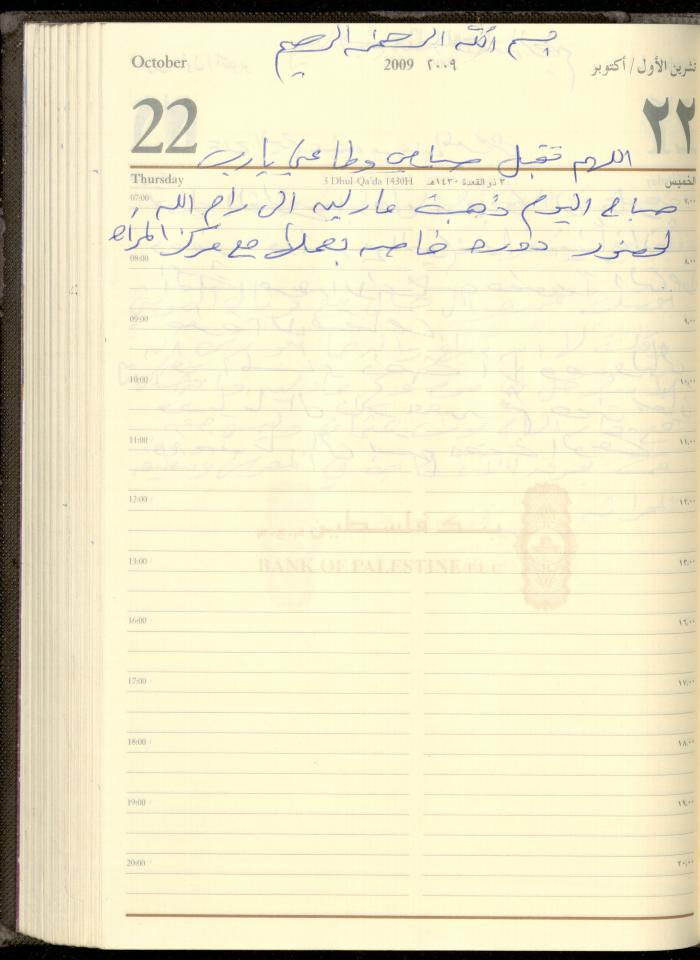 بسم الله الرحمن الرحيم
October 2009 ٢٠٠٩ تشرين الأول / أكتوبر
22 ٢٢
اللهم تقبل صيامي وطاعتي يا رب
Thursday 3 Dhul-Qa'da 1430H ٣ ذو القعدة ١٤٣٠هـ الخميس
07:00 ٧,٠٠
صباح اليوم ذهبت مارلين الى رام الله
لحضور دوره خاصه بعملها مع مركز المرأه
08:00 ٨,٠٠
09:00 ٩,٠٠
10:00 ١٠,٠٠
11:00 ١١,٠٠
12:00 ١٢,٠٠
بنك فلسطين م.ع.م
13:00 ١٣,٠٠
BANK OF PALESTINE P.L.C
16:00 ١٦,٠٠
17:00 ١٧,٠٠
18:00 ١٨,٠٠
19:00 ١٩,٠٠
20:00 ٢٠,٠٠